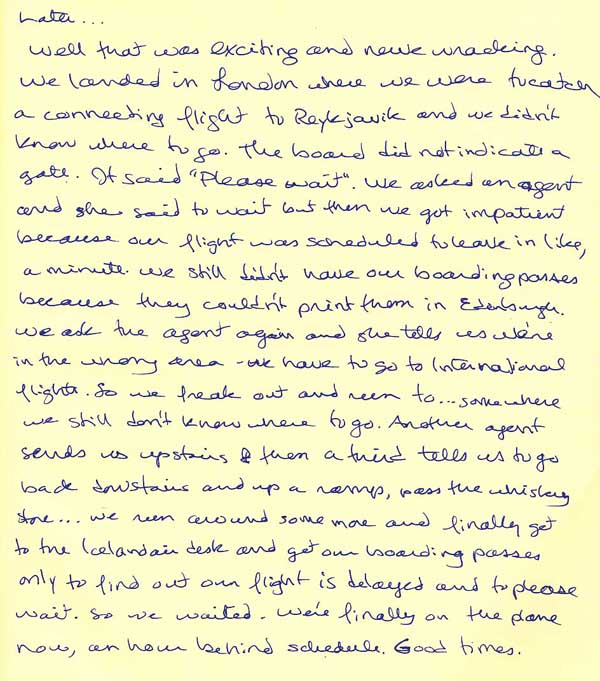 Later...
Well that was exciting and nerve wracking.
We landed in London where we were to catch
a connecting flight to Reykjavik and we didn't
know where to go. The board did not indicate a
gate. It said "Please wait". We asked an agent
and she said to wait but then we got impatient
because our flight was scheduled to leave in like,
a minute. We still didn't have our boarding passes
because they couldn't print them in Edenburgh.
We ask the agent again and she tells us we're
in the wrong area - we have to go to International
flights. So we freak out and run to... somewhere
we still don't know where to go. Another agent
sends us upstairs & then a third tells us to go
back downstairs and up a ramp, pass the whiskey
store... we run around some more and finally get
to the Icelandair desk and get our boarding passes
only to find out our flight is delayed and to please
wait. So we waited. We're finally on the plane
now, an hour behind schedule. Good times.